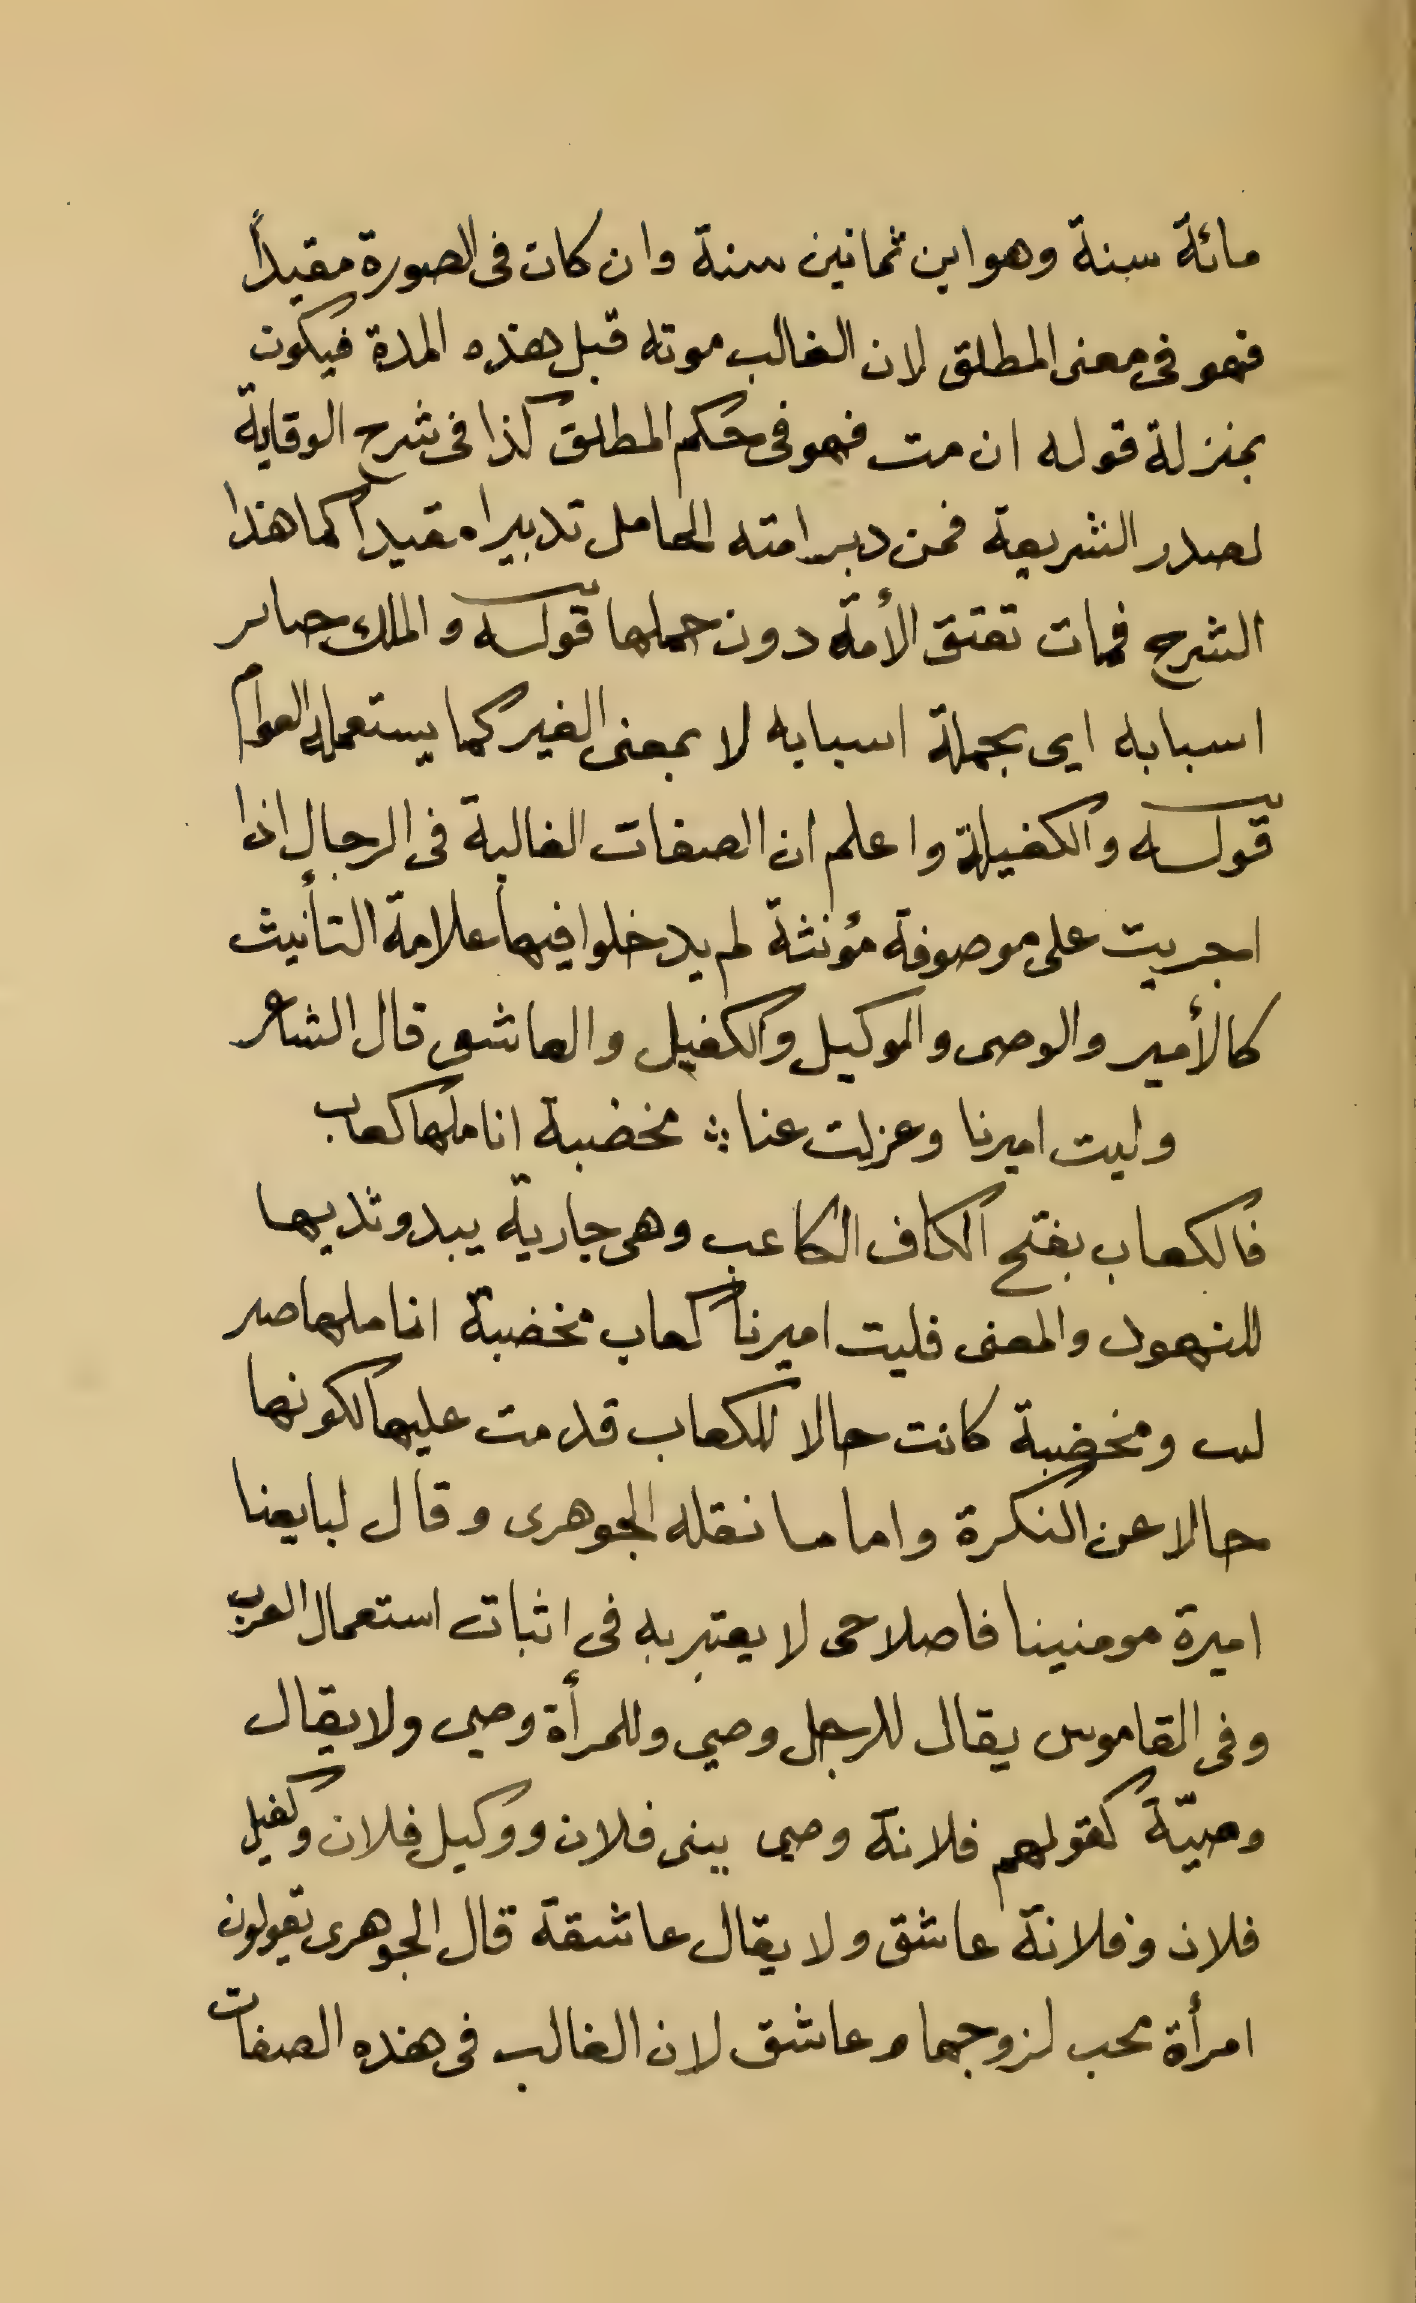 مائة سنة وهو ابن ثمانين سنة وان كان فى الصورة مقيداً
فهو فى معنى المطلق لان الغالب موته قبل هذه المدة فيكون
بمنزلة قوله ان مت فهو فى حكم المطلق كذا فى شرح الوقاية
لصدر الشريعة فمن دبر امته الحامل تدبيرا مقيدا كما هذا
الشرح فمات تعتق الأمة دون حملها قوله والملك
اسبابه اى بجملة اسبابه لا بمعنى الغير كما يستعمله العوام
قوله والكفيلة واعلم ان الصفات الغالبة فى الرجال اذا
اجريت على موصوفة مؤنثة لم يدخلوا فيها علامة التأنيث
كالأمير والوصى والوكيل والكفيل والعاشق قال الشاعر
وليت اميرنا وعزلت عنا ؞ مخضبة اناملها كعاب
فالكعاب بفتح الكاف الكاعب وهى جارية يبدو ثديها
للنهود والمعنى فليت اميرنا كعاب مخضبة اناملها
ومخضبة كانت حالا للكعاب قدمت عليها لكونها
حالا عن النكرة واما ما نقله الجوهرى وقال لبايعنا
اميرة مومنينا فاصلاحى لا يعتبر به فى اثبات استعمال العرب
وفى القاموس يقال للرجل وصي وللمرأة وصي ولا يقال
وصيّة كقولهم فلانة وصى بنى فلان ووكيل فلان وكفيل
فلان وفلانة عاشق ولا يقال عاشقة قال الجوهرى تقولون
امرأة محب لزوجها وعاشق لان الغالب فى هذه الصفات